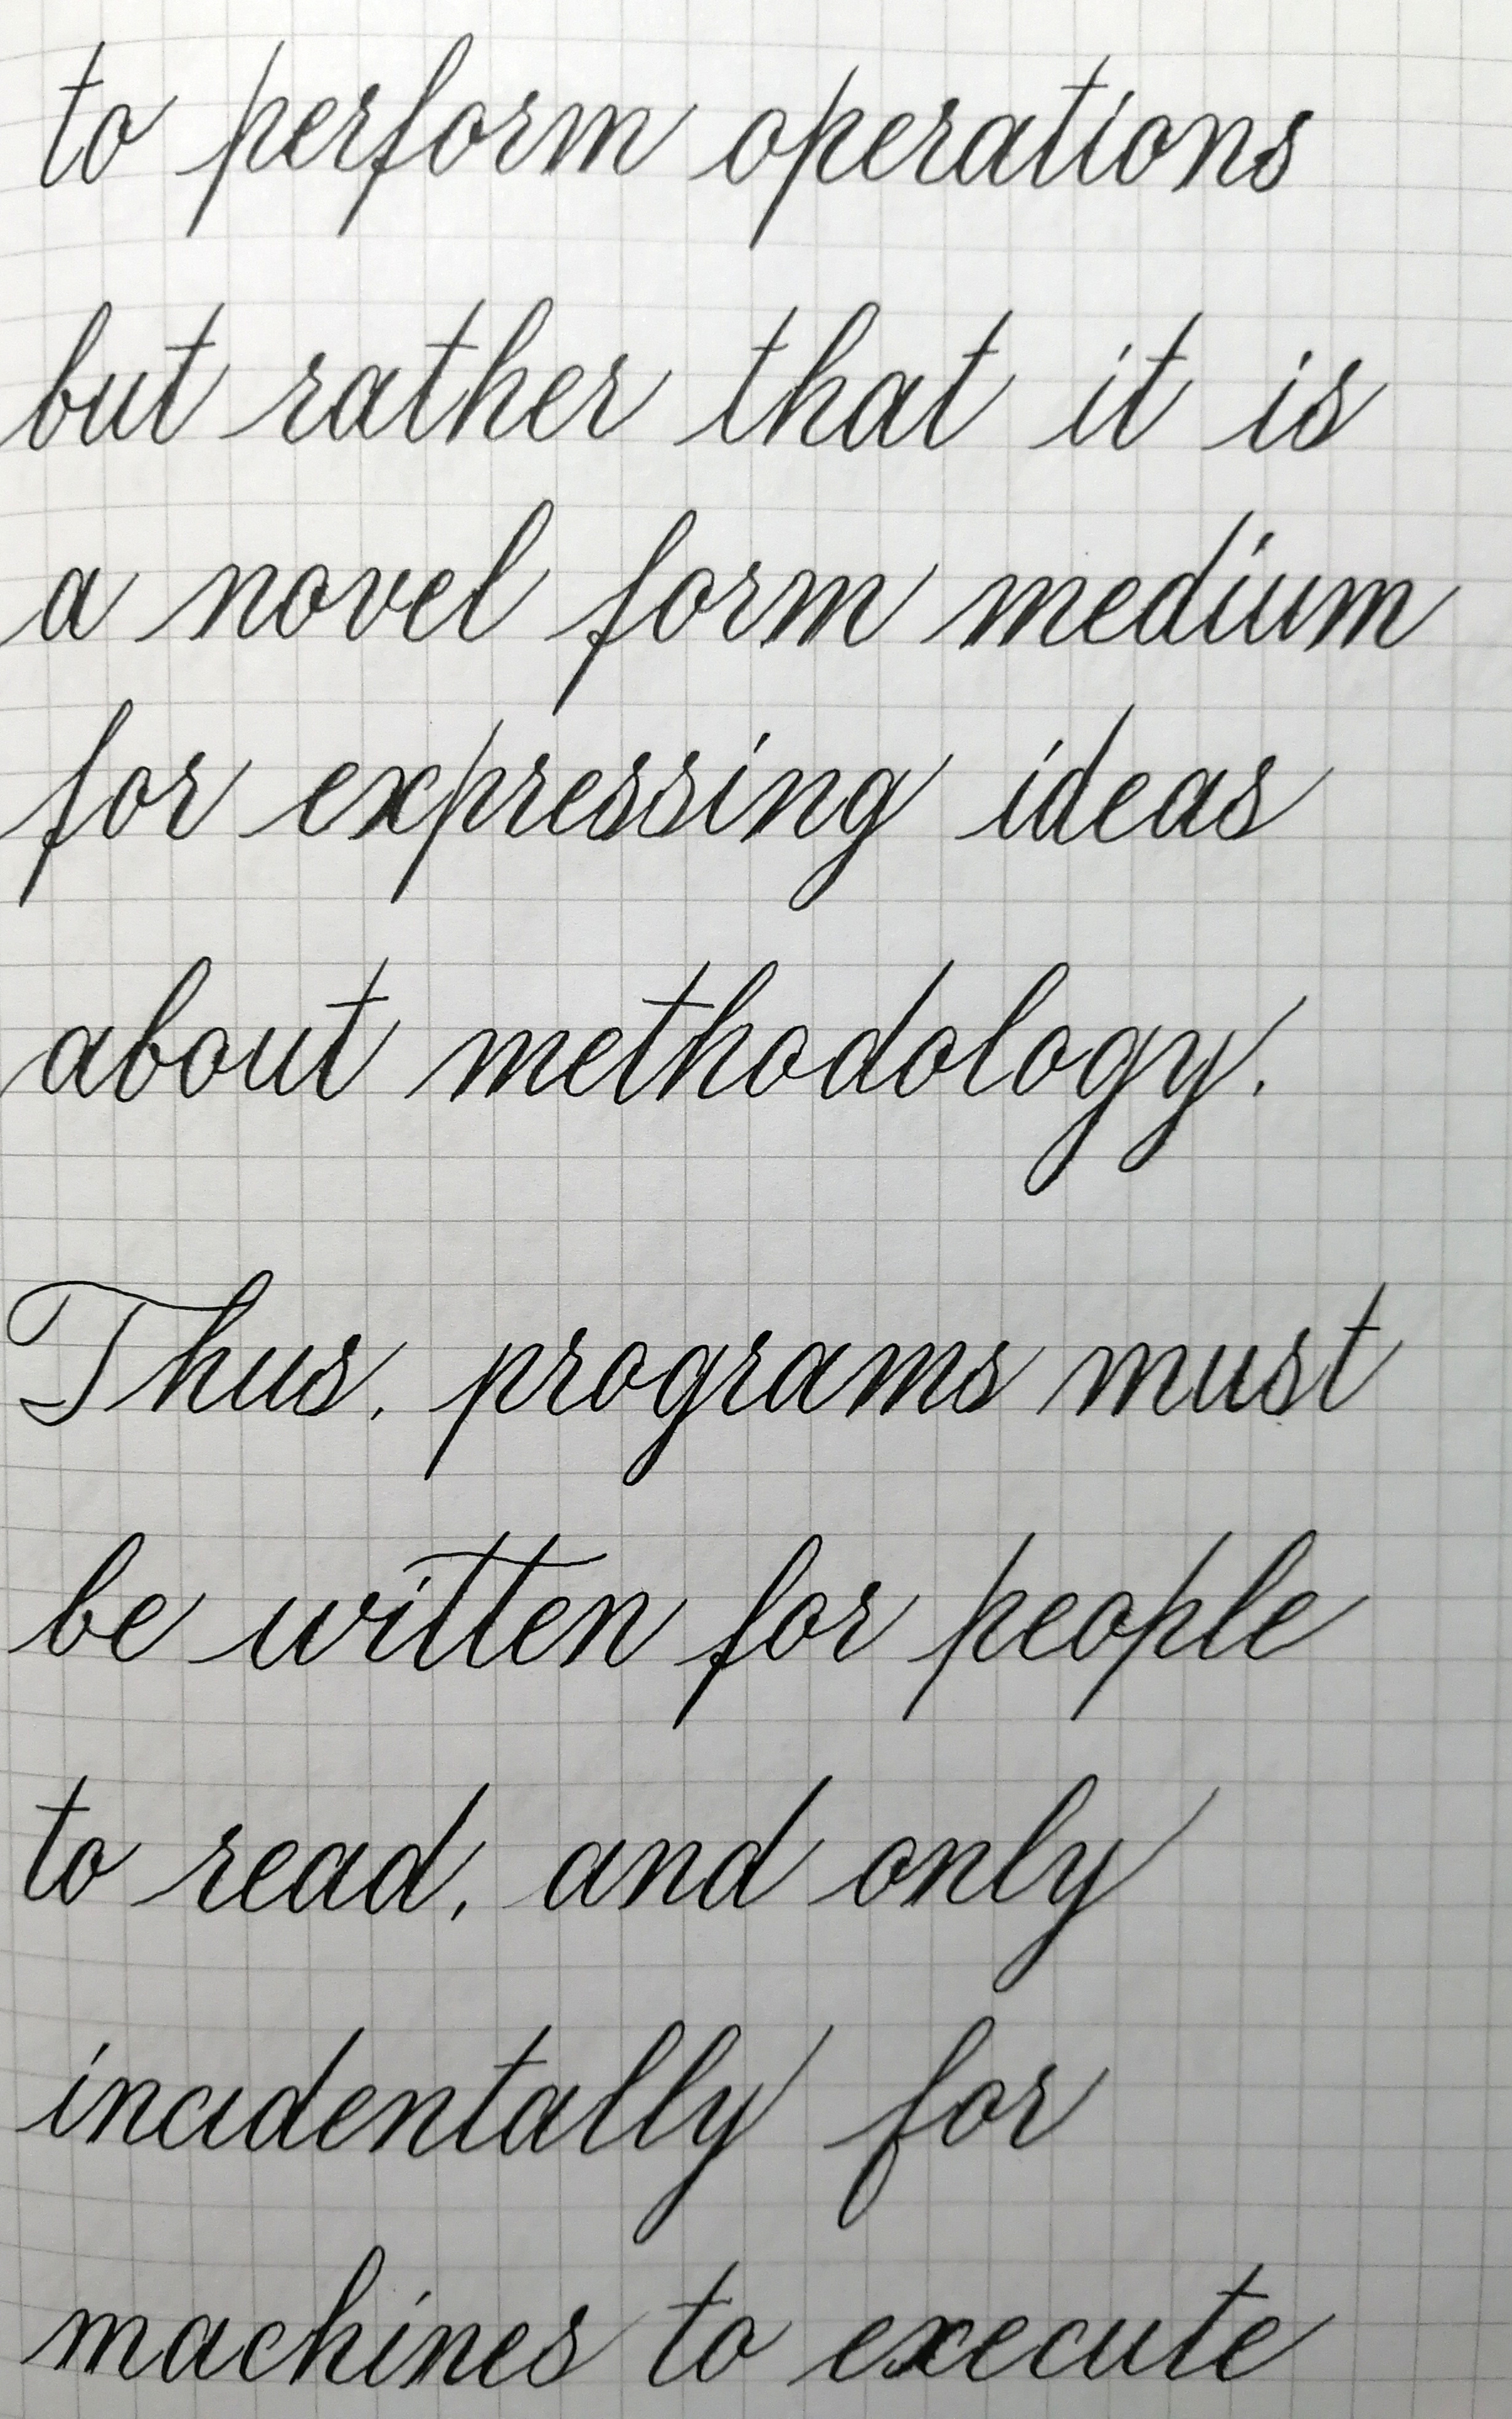 to perform operations
but rather that it is
a novel form medium
for expressing ideas
about methodology.
Thus, programs must
be written for people
to read, and only
incidentally for
machines to execute